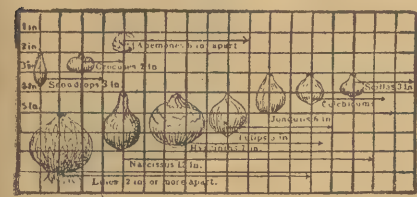 1 in.
2 in.
Anemones 6 in. apart
3 in.
Crocuses 2 in.
Snowdrops 3 in.
Scillas 3 in.
Colchicums
5 in.
Jonquils 6 in.
Tulips 5 in.
Hyacinths 7 in.
Narcissus 12 in.
Lilies 12 in. or more apart.